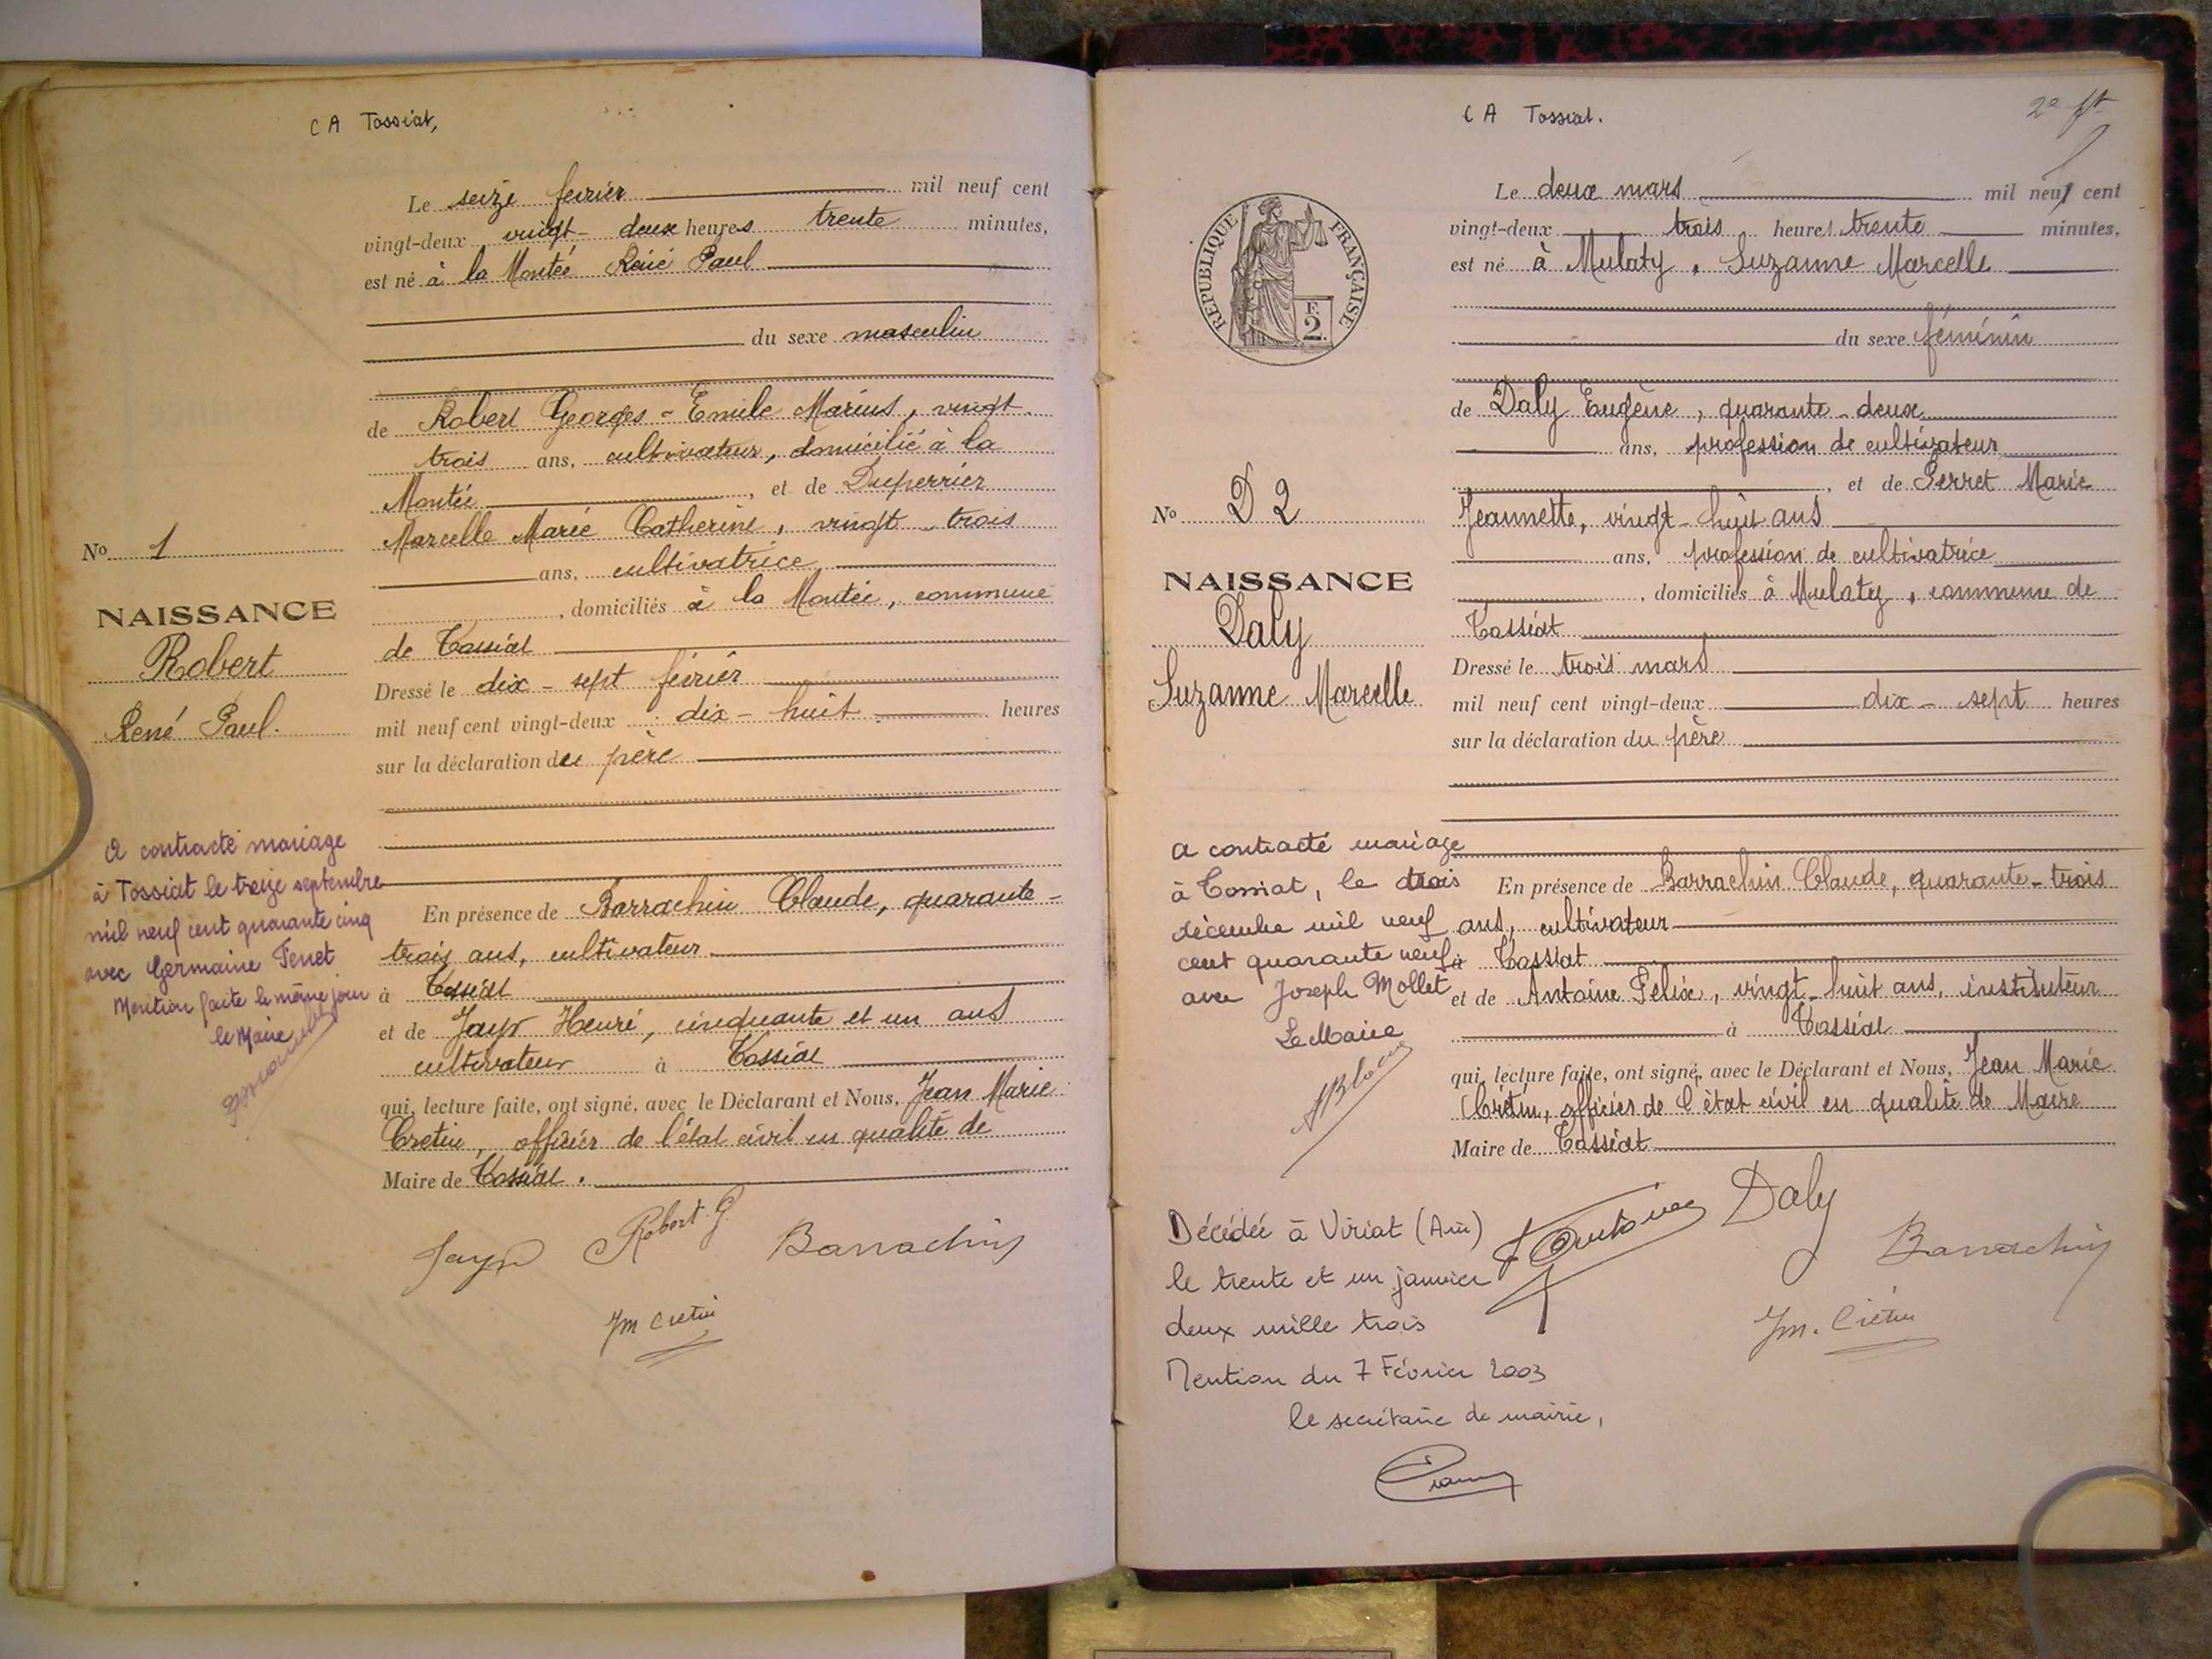 C A Tossiat,
Le seize février mil neuf cent
vingt-deux vingt-deux heures trente minutes,
est né à la Montée René Paul
du sexe masculin
de Robert Georges-Emile Marius, vingt
trois ans, cultivateur, domicilié à la
Montée, et de Duperrier
Marcelle Marie Catherine, vingt-trois
ans, cultivatrice
, domiciliés à la Montée, commune
de Tossiat
Dressé le dix-sept février
mil neuf cent vingt-deux dix-huit heures
sur la déclaration du père
En présence de Barrachin Claude, quarante-
trois ans, cultivateur
à Tossiat
et de Jayr Henri, cinquante et un ans
cultivateur à Tossiat
qui, lecture faite, ont signé, avec le Déclarant et Nous, Jean Marie
Cretin, officier de l'état civil en qualité de
Maire de Tossiat.
Jayr Robert G. Barrachin
Jm Cretin
No 1
NAISSANCE
Robert
René Paul.
A contracté mariage
à Tossiat le treize septembre
mil neuf cent quarante cinq
avec Germaine Ferret
Mention faite le même jour
le Maire
C A Tossiat.
2e ft
Le deux mars mil neuf cent
vingt-deux trois heures trente minutes,
est né à Mulaty, Suzanne Marcelle
du sexe féminin
de Daly Eugène, quarante-deux
ans, profession de cultivateur
, et de Perret Marie
Jeannette, vingt-huit ans
ans, profession de cultivatrice
, domiciliés à Mulaty, commune de
Tossiat
Dressé le trois mars
mil neuf cent vingt-deux dix-sept heures
sur la déclaration du père
En présence de Barrachin Claude, quarante-trois
ans, cultivateur
à Tossiat
et de Antoine Félix, vingt-huit ans, instituteur
à Tossiat
qui, lecture faite, ont signé, avec le Déclarant et Nous, Jean Marie
Crétin, officier de l'état civil en qualité de Maire
Maire de Tossiat
RÉPUBLIQUE FRANÇAISE
F.
2.
No D2
NAISSANCE
Daly
Suzanne Marcelle
a contracté mariage
à Tossiat, le trois
décembre mil neuf
cent quarante neuf
avec Joseph Mollet
Le Maire
Daly
Barrachin
Jm. Crétin
Décédée à Viriat (Ain)
le trente et un janvier
deux mille trois
Mention du 7 Février 2003
le secrétaire de mairie,